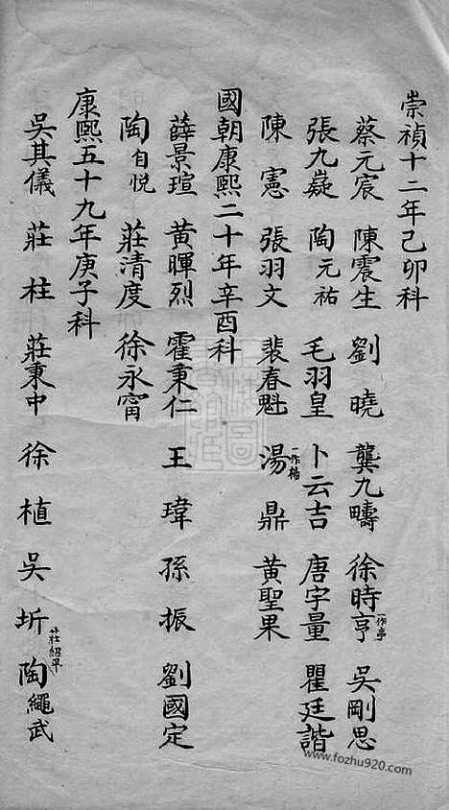 崇禎十二年己卯科
蔡元宸 陳震生 劉曉 龔九疇 徐時亨一作亭 吳剛思
張九嶷 陶元祐 毛羽皇 卜云吉 唐宇量 瞿廷諧
陳憲 張羽文 裴春魁 湯一作楊鼎 黃聖果
國朝康熙二十年辛酉科
薛景瑄 黃暉烈 霍秉仁 王瑋 孫振 劉國定
陶自悅 莊清度 徐永甯
康熙五十九年庚子科
吳其儀 莊柱 莊秉中 徐植 吳圻 莊紹平 陶繩武
www.fozhu920.com